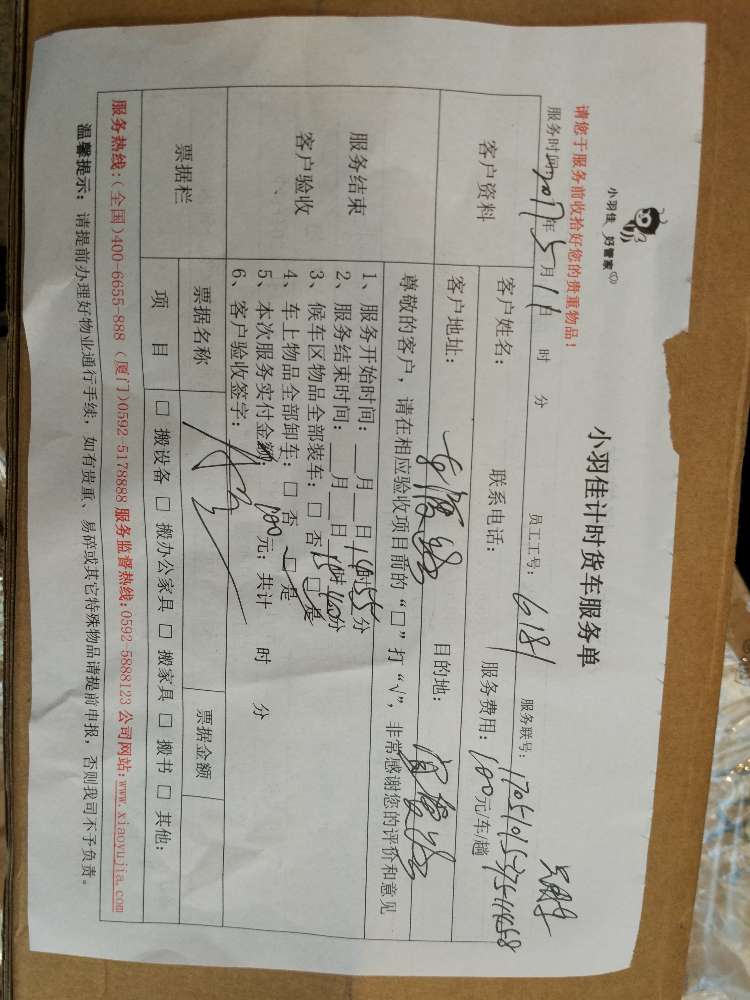 小羽佳 好管家
小羽佳计时货车服务单
请您于服务前收拾好您的贵重物品！
服务时间：2017年5月11日 时 分 员工工号：6181 服务联号：
客户资料 客户姓名： 联系电话： 服务费用：100元/车/趟
客户地址： 目的地：
尊敬的客户，请在相应验收项目前的“□”打“√”，非常感谢您的评价和意见
服务结束
客户验收
1、服务开始时间：__月__日14时55分
2、服务结束时间：__月__日15时40分
3、候车区物品全部装车：□ 否 □ 是
4、车上物品全部卸车：□ 否 □ 是
5、本次服务实付金额：100元；共计 时 分
6、客户验收签字：
票据栏 票据名称 票据金额
项 目 □ 搬设备 □ 搬办公家具 □ 搬家具 □ 搬书 □ 其他：
服务热线：(全国)400-6655-888 (厦门)0592-5178888 服务监督热线：0592-5888123 公司网站：www.xiaoyujia.com
温馨提示：请提前办理好物业通行手续，如有贵重、易碎或其它特殊物品请提前申报，否则我司不予负责。